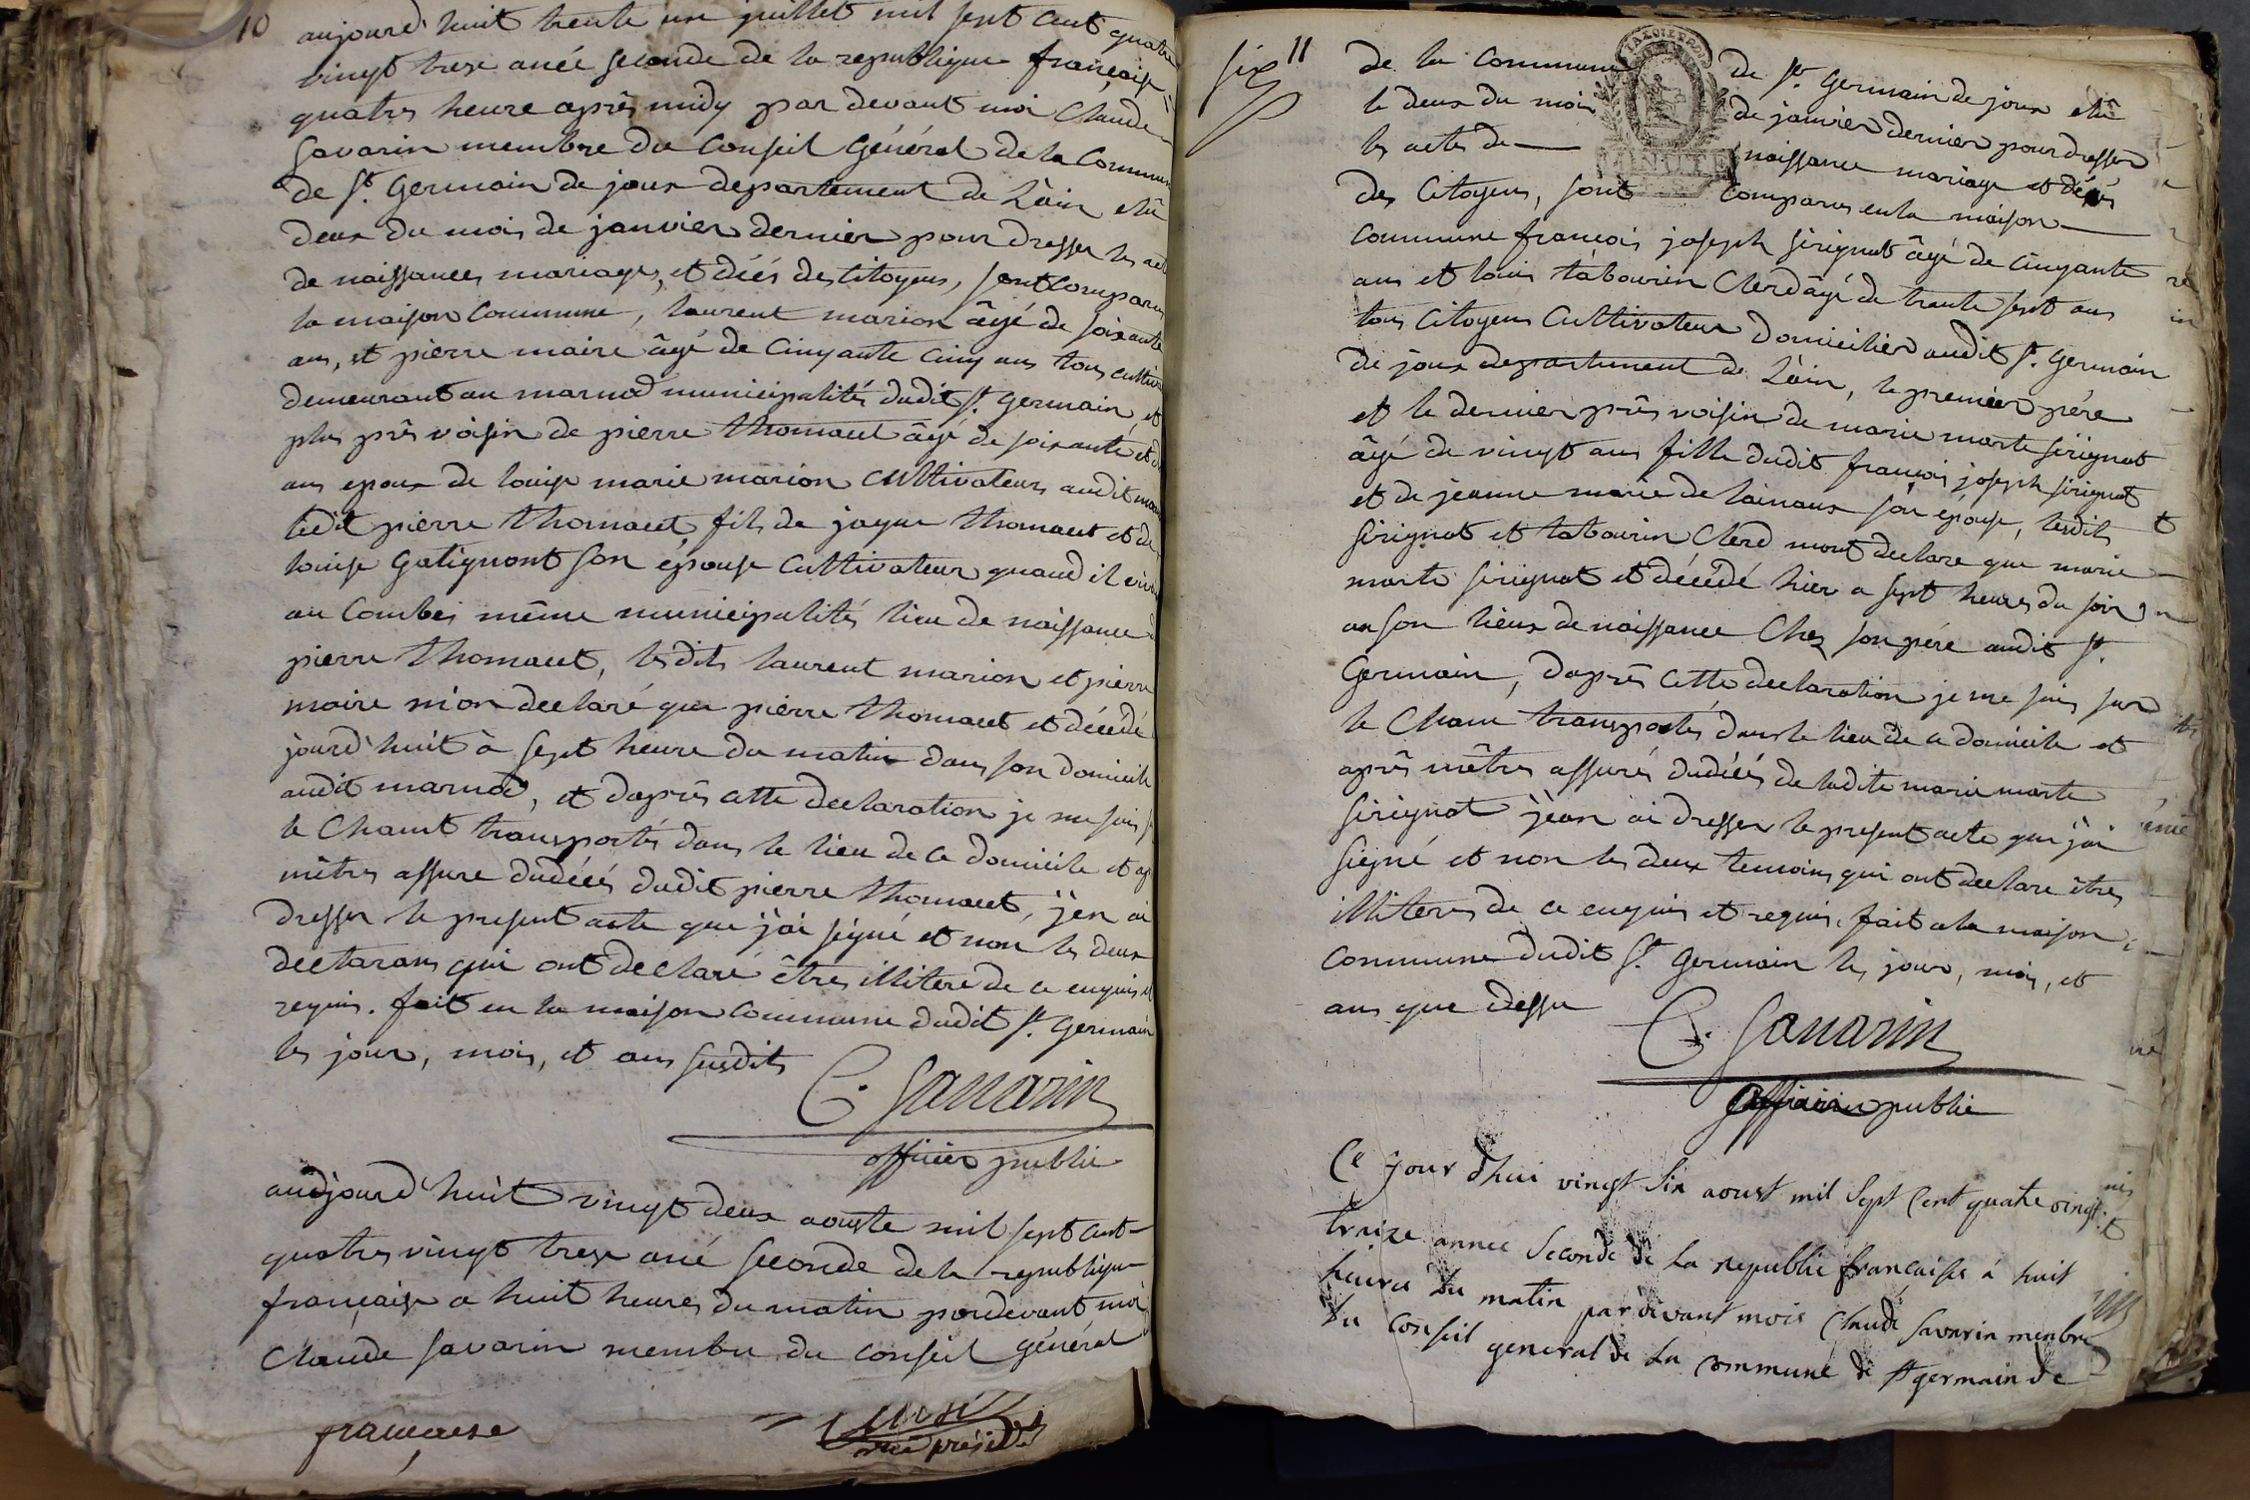 10
aujourd'huit trente un juillet mil sept cent quatre
vingt treze aneé seconde de la republique français
quatres heure après midy par devant moi Claude
Savarin membre du Conseil Général de la Commun
de St. Germain de joux departement de L'ain elû
deux du mois de janvier dernier pour dresser les act
de naissances mariages, et déés des Citoyens, sont comparu
la maison Commune, laurent marion âgé de soixante
ans, et pierre maire âgé de Cinqante Cinq ans tous cultiva
demeurant au marnod municipalités dudit St. Germain et
plus près voisin de pierre thomaset âgé de soixante et d
ans epoux de louise marie marion Cultivateurs audit mar
ledit pierre thomaset fils de jaque thomaset et de
louise Gatignont son épouse Cultivateur quand il viv
au Combei même municipalités lieu de naissance d
pierre thomaset, lesdits laurent marion et pierre
maire m'on declaré que pierre thomaset et décédé
jourd'huit à sept heure du matin dans son domicile
audit marnod, et daprès cette declaration je me suis s
le Chamt transportés dans le lieu de ce domicile et ap
mêtres assure dudéés dudit pierre thomaset, j'en ai
dresser le present acte que j'ai signé et non les deux
declarans qui ont declaré êtres illitere de ce enquis et
requis. fait en la maison Commune dudit St. Germain
les jour, mois, et ans susdits
C. Savarin
officier public
audjourd'huit vingt deux aouste mil sept cent
quatres vingt treze ané seconde de la republique
française a huit heures du matin pardevant moi
Claude Savarin membre du Conseil général
française
vice présidt
six 11
de la Commune de St. Germain de joux elû
le deux du mois de janvier dernier pour dresser
les actes de naissance mariage et déés
des Citoyens, sont Comparus en la maison
Commune francois joseph sirignat âgé de Cinqante
ans et louis tabourin Clerd âgé de trante sept ans
tous Citoyens Cultivateur domicilier audit St. Germain
de joux departement de L'ain, le premier père
et le dernier près voisin de marie marte sirignat
âgé de vingt ans fille dudit francois joseph sirignat
et de jeanne marie delainaux son épouse, lesdits
sirignat et tabourin Clerd mont declare que marie
marte sirignat et décédé hier a sept heures du soir
au son lieux de naissance Chez son père audit St.
Germain, daprès Cette declaration je me suis sur
le Cham transportés dans le lieu de ce domicile et
après mêtres assurés dudéés de ladite marie marte
sirignat jean ai dresser le present acte que j'ai
signé et non les deux temoins qui ont declare êtres
illiteres de ce enquis et requis. fait ala maison
Commune dudit St. Germain les jour, mois, et
ans que dessu
C. Savarin
officier public
Ce jourdhui vingt Six aoust mil Sept Cent quatre vingt
traize annee Seconde de La republic françaises à huit
heures du matin par divant moi Claude Savarin menbre
du Conseil general de La Commune de St germain de